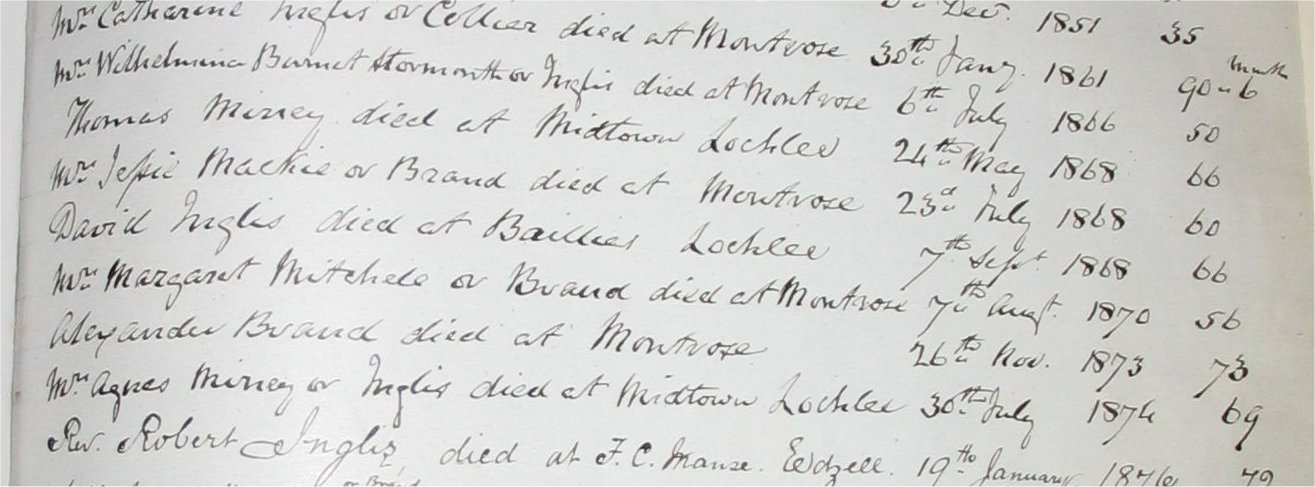 Mrs Catharine Inglis or Collier died at Montrose Dec. 1851 35
Mrs Wilhelmina Burnet Stormonth or Inglis died at Montrose 30th Jany. 1861 90 " 6 months
Thomas Mirrey died at Midtown Lochlee 6th July 1866 50
Mrs Jessie Mackie or Brand died at Montrose 24th May 1868 66
David Inglis died at Baillies Lochlee 23d July 1868 60
Mrs Margaret Mitchell or Brand died at Montrose 7th Sept. 1868 66
Alexander Brand died at Montrose 7th Augt. 1870 56
Mrs Agnes Mirrey or Inglis died at Midtown Lochlee 26th Nov. 1873 73
Rev. Robert Inglis, died at F. C. Manse. Edzell. 30th July 1874 69
19th January 1876 79
or Brand